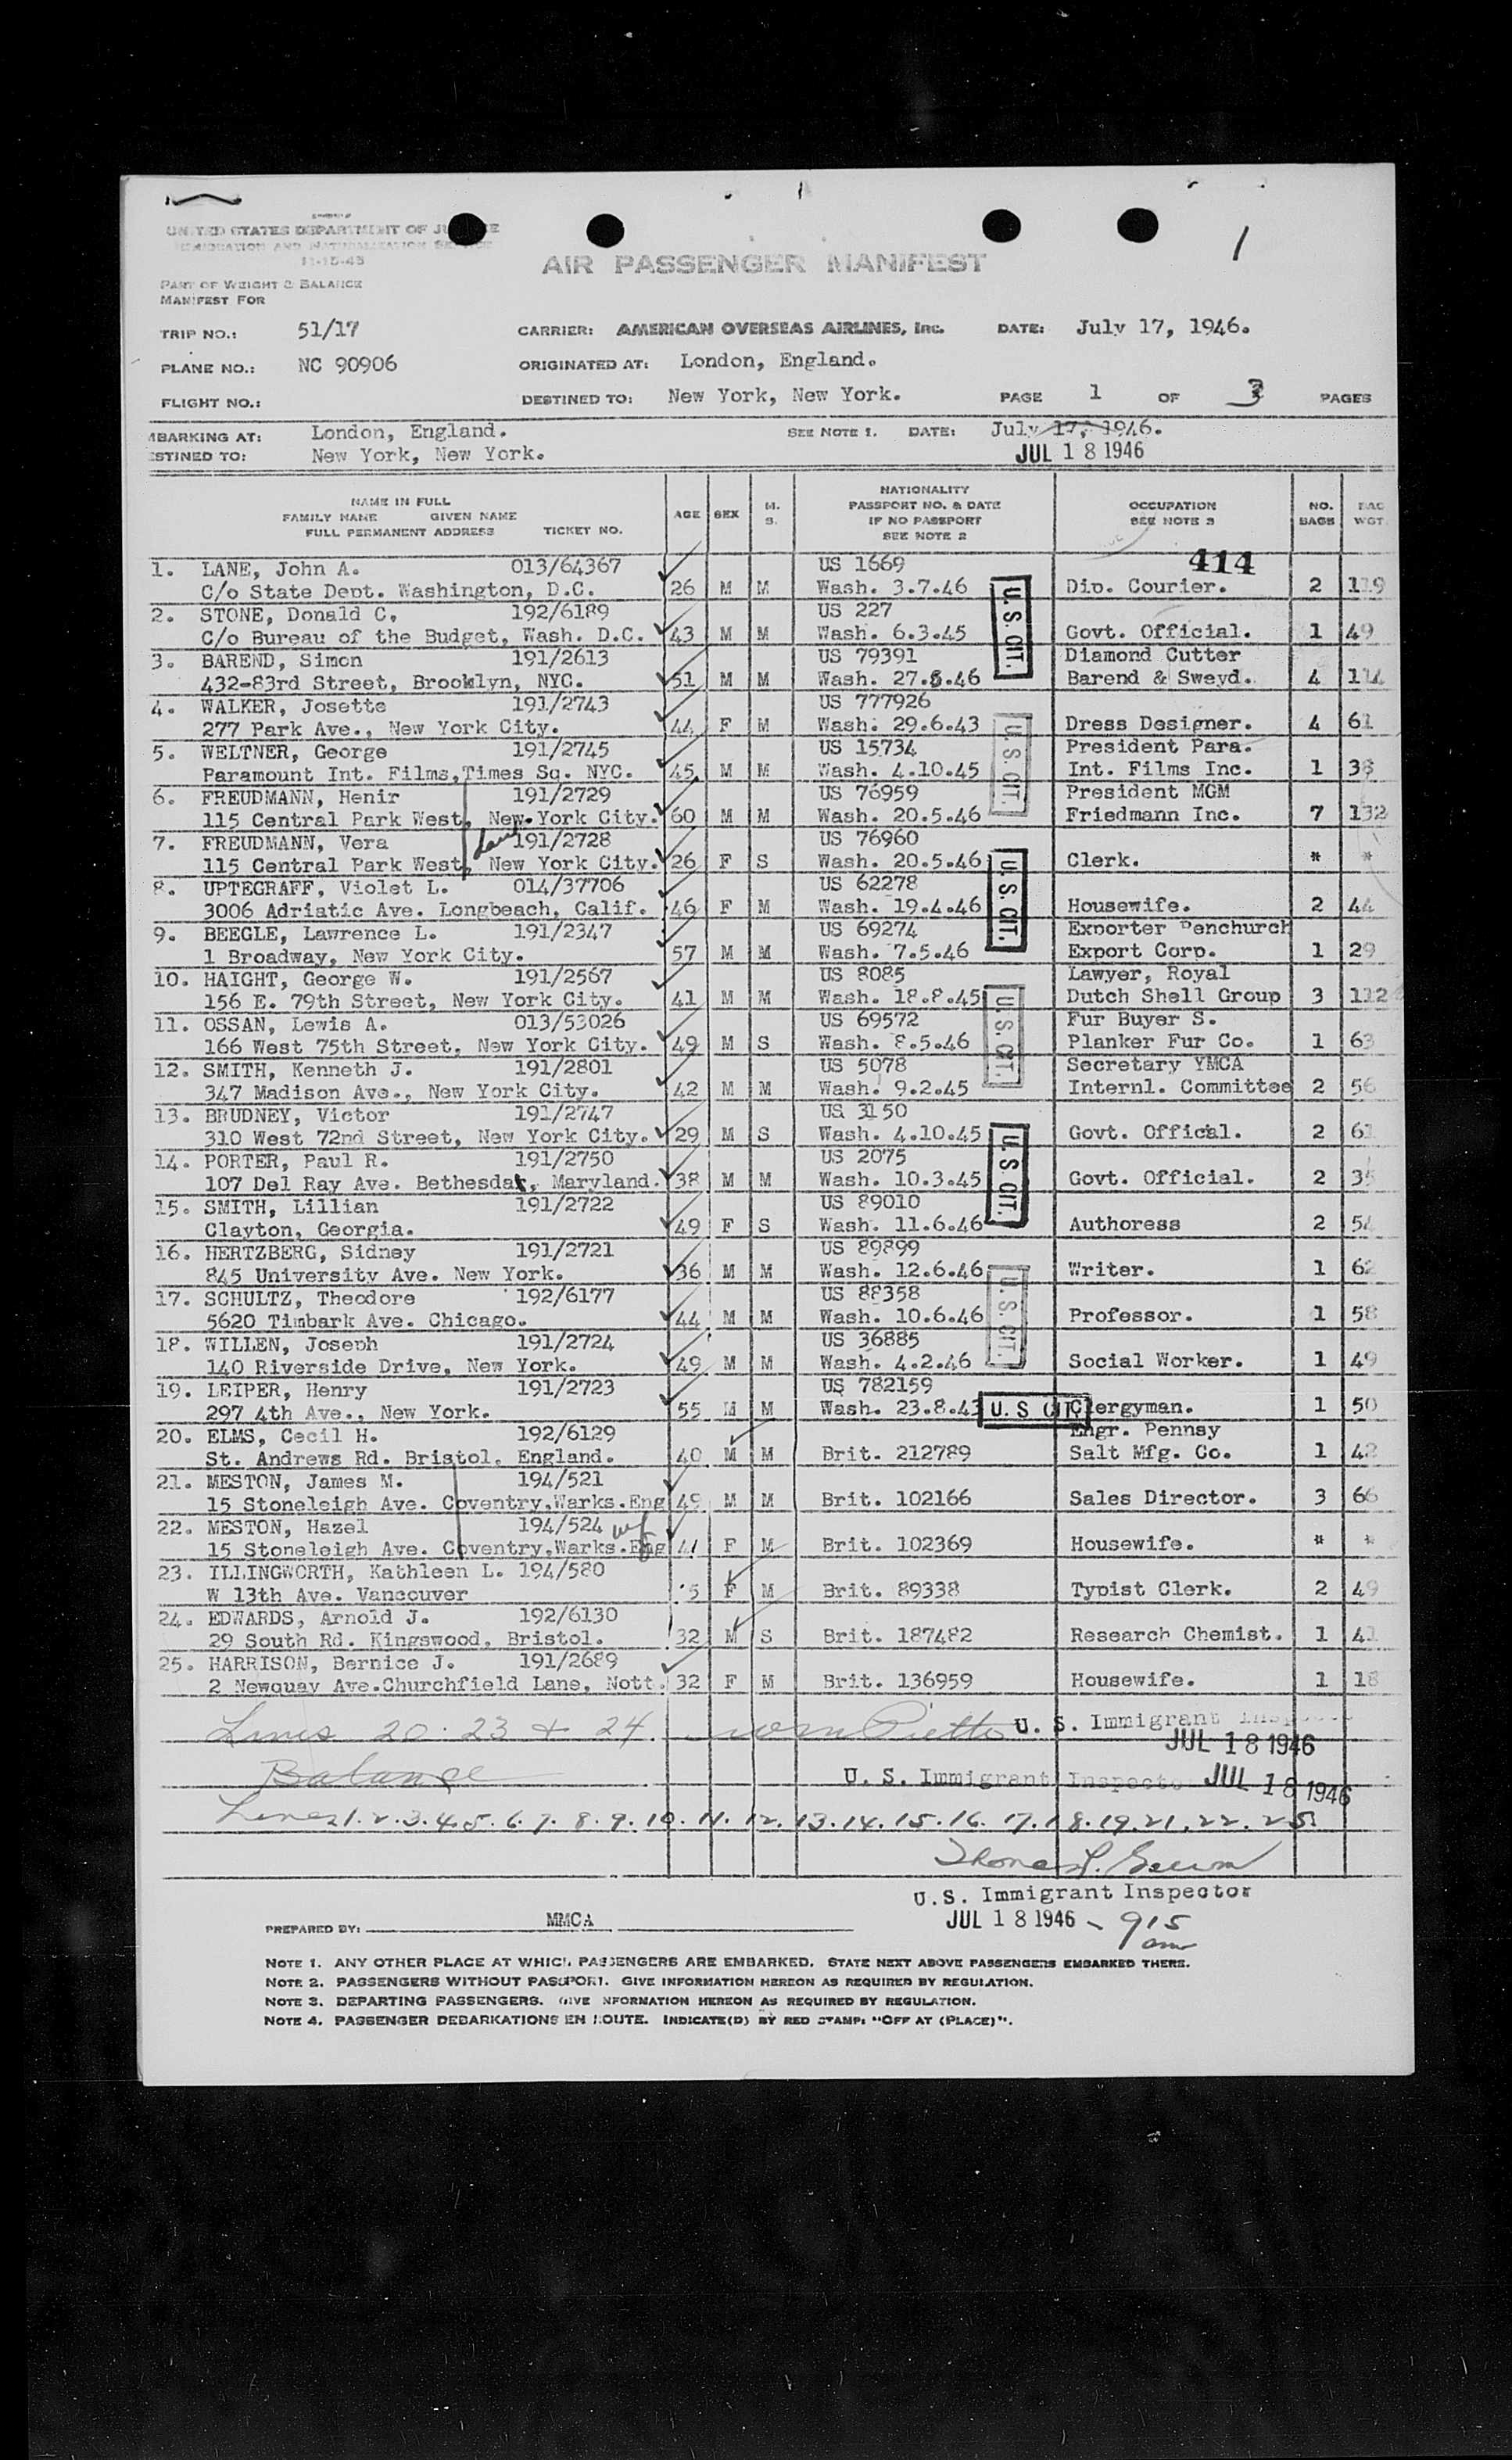 UNITED STATES DEPARTMENT OF JUSTICE
IMMIGRATION AND NATURALIZATION SERVICE
11-15-45
AIR PASSENGER MANIFEST
1
PART OF WEIGHT & BALANCE
MANIFEST FOR
TRIP NO.: 51/17 CARRIER: AMERICAN OVERSEAS AIRLINES, Inc. DATE: July 17, 1946.
PLANE NO.: NC 90906 ORIGINATED AT: London, England.
FLIGHT NO.: DESTINED TO: New York, New York. PAGE 1 OF 3 PAGES
MBARKING AT: London, England. SEE NOTE 1. DATE: July 17, 1946.
STINED TO: New York, New York. JUL 18 1946
NAME IN FULL
FAMILY NAME GIVEN NAME
FULL PERMANENT ADDRESS TICKET NO. AGE SEX M. S. NATIONALITY PASSPORT NO. & DATE IF NO PASSPORT SEE NOTE 2 OCCUPATION SEE NOTE 3 NO. BAGS BAG WGT.
414
1. LANE, John A. 013/64367 US 1669
C/o State Dept. Washington, D.C. 26 M M Wash. 3.7.46 Dip. Courier. 2 119
2. STONE, Donald C. 192/6189 US 227
C/o Bureau of the Budget, Wash. D.C. 43 M M Wash. 6.3.45 Govt. Official. 1 49
U.S. CIT.
3. BAREND, Simon 191/2613 US 79391 Diamond Cutter
432-83rd Street, Brooklyn, NYC. 51 M M Wash. 27.5.46 Barend & Sweyd. 4 114
4. WALKER, Josette 191/2743 US 777926
277 Park Ave., New York City. 44 F M Wash. 29.6.43 Dress Designer. 4 61
5. WELTNER, George 191/2745 US 15734 President Para.
Paramount Int. Films, Times Sq. NYC. 45 M M Wash. 4.10.45 Int. Films Inc. 1 38
U.S. CIT.
6. FREUDMANN, Henir 191/2729 US 76959 President MGM
115 Central Park West, New York City. 60 M M Wash. 20.5.46 Friedmann Inc. 7 132
7. FREUDMANN, Vera 191/2728 US 76960
115 Central Park West, New York City. 26 F S Wash. 20.5.46 Clerk. * *
8. UPTEGRAFF, Violet L. 014/37706 US 62278
3006 Adriatic Ave. Longbeach, Calif. 46 F M Wash. 19.4.46 Housewife. 2 44
U.S. CIT.
9. BEEGLE, Lawrence L. 191/2347 US 69274 Exporter Penchurch
1 Broadway, New York City. 57 M M Wash. 7.5.46 Export Corp. 1 29
10. HAIGHT, George W. 191/2567 US 8085 Lawyer, Royal
156 E. 79th Street, New York City. 41 M M Wash. 18.8.45 Dutch Shell Group 3 112
11. OSSAN, Lewis A. 013/53026 US 69572 Fur Buyer S.
166 West 75th Street, New York City. 49 M S Wash. 8.5.46 Planker Fur Co. 1 63
U.S. CIT.
12. SMITH, Kenneth J. 191/2801 US 5078 Secretary YMCA
347 Madison Ave., New York City. 42 M M Wash. 9.2.45 Internl. Committee 2 56
13. BRUDNEY, Victor 191/2747 US 3150
310 West 72nd Street, New York City. 29 M S Wash. 4.10.45 Govt. Offical. 2 61
14. PORTER, Paul R. 191/2750 US 2075
107 Del Ray Ave. Bethesda, Maryland. 38 M M Wash. 10.3.45 Govt. Official. 2 35
U.S. CIT.
15. SMITH, Lillian 191/2722 US 89010
Clayton, Georgia. 49 F S Wash. 11.6.46 Authoress 2 54
16. HERTZBERG, Sidney 191/2721 US 89899
845 University Ave. New York. 36 M M Wash. 12.6.46 Writer. 1 62
17. SCHULTZ, Theodore 192/6177 US 88358
5620 Timbark Ave. Chicago. 44 M M Wash. 10.6.46 Professor. 1 58
U.S. CIT.
18. WILLEN, Joseph 191/2724 US 36885
140 Riverside Drive, New York. 49 M M Wash. 4.2.46 Social Worker. 1 49
19. LEIPER, Henry 191/2723 US 782159
297 4th Ave., New York. 55 M M Wash. 23.8.43 U. S CIT. Clergyman. 1 50
20. ELMS, Cecil H. 192/6129 Engr. Pennsy
St. Andrews Rd. Bristol, England. 40 M M Brit. 212789 Salt Mfg. Co. 1 42
21. MESTON, James M. 194/521
15 Stoneleigh Ave. Coventry,Warks.Eng 49 M M Brit. 102166 Sales Director. 3 66
22. MESTON, Hazel 194/524 wf
15 Stoneleigh Ave. Coventry,Warks.Eng 41 F M Brit. 102369 Housewife. * *
23. ILLINGWORTH, Kathleen L. 194/580
W 13th Ave. Vancouver 5 F M Brit. 89338 Typist Clerk. 2 49
24. EDWARDS, Arnold J. 192/6130
29 South Rd. Kingswood, Bristol. 32 M S Brit. 187482 Research Chemist. 1 41
25. HARRISON, Bernice J. 191/2689
2 Newquay Ave.Churchfield Lane, Nott. 32 F M Brit. 136959 Housewife. 1 18
Lines 20. 23 + 24 U. S. Immigrant Inspector
JUL 18 1946
Balance U. S. Immigrant Inspector JUL 18 1946
Lines 1. 2. 3. 4. 5. 6. 7. 8. 9. 10. 11. 12. 13. 14. 15. 16. 17. 18. 19. 21. 22. 25
U.S. Immigrant Inspector
PREPARED BY: MMCA JUL 18 1946 - 915 am
NOTE 1. ANY OTHER PLACE AT WHICH PASSENGERS ARE EMBARKED. STATE NEXT ABOVE PASSENGERS EMBARKED THERE.
NOTE 2. PASSENGERS WITHOUT PASSPORT. GIVE INFORMATION HEREON AS REQUIRED BY REGULATION.
NOTE 3. DEPARTING PASSENGERS. GIVE INFORMATION HEREON AS REQUIRED BY REGULATION.
NOTE 4. PASSENGER DEBARKATIONS EN ROUTE. INDICATE(D) BY RED STAMP: "OFF AT (PLACE)".